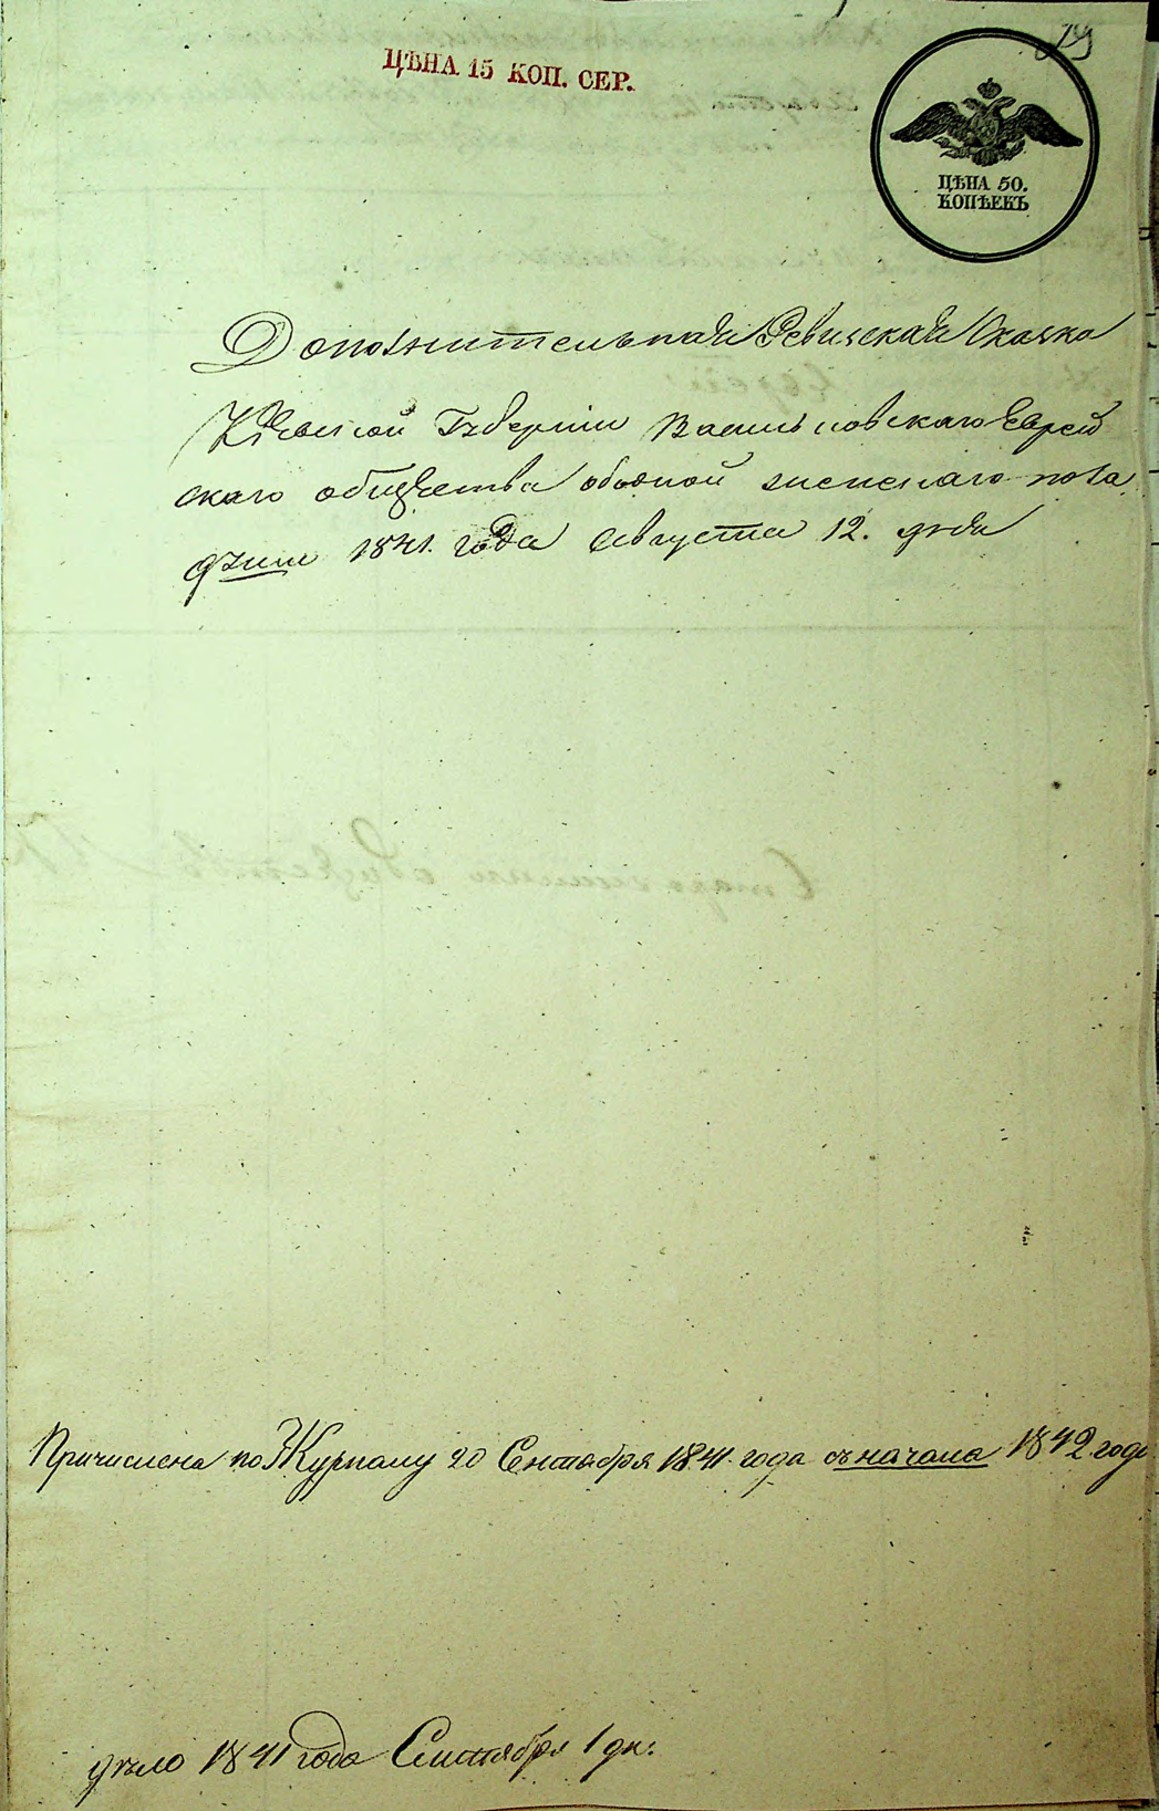 29
ЦѢНА 15 КОП. СЕР.
ЦѢНА 50.
КОПѢЕКЪ
Дополнительная Ревизская Сказка
Кіевской Губерніи Васильковскаго Еврей
скаго общества ободной женскаго пола
души 1841. года Августа 12. дня
Причислена по Журналу 20 Сентября 1841. года съ начала 1842 года
дѣло 1841 года Сентября 1 дн: